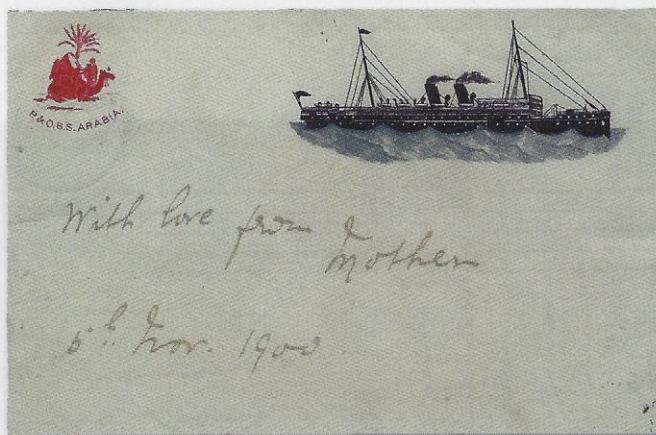 P.&O.S.S. ARABIA.
With love from
Mother
5th Nov. 1900.